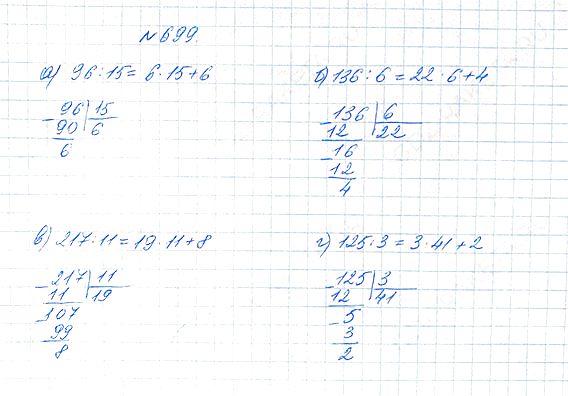 №699.
а) 96:15= 6·15+6
96 15
90 6
6
б) 136:6=22·6+4
136 6
12 22
16
12
4
в) 217:11=19·11+8
217 11
11 19
107
99
8
г) 125:3=3·41+2
125 3
12 41
5
3
2